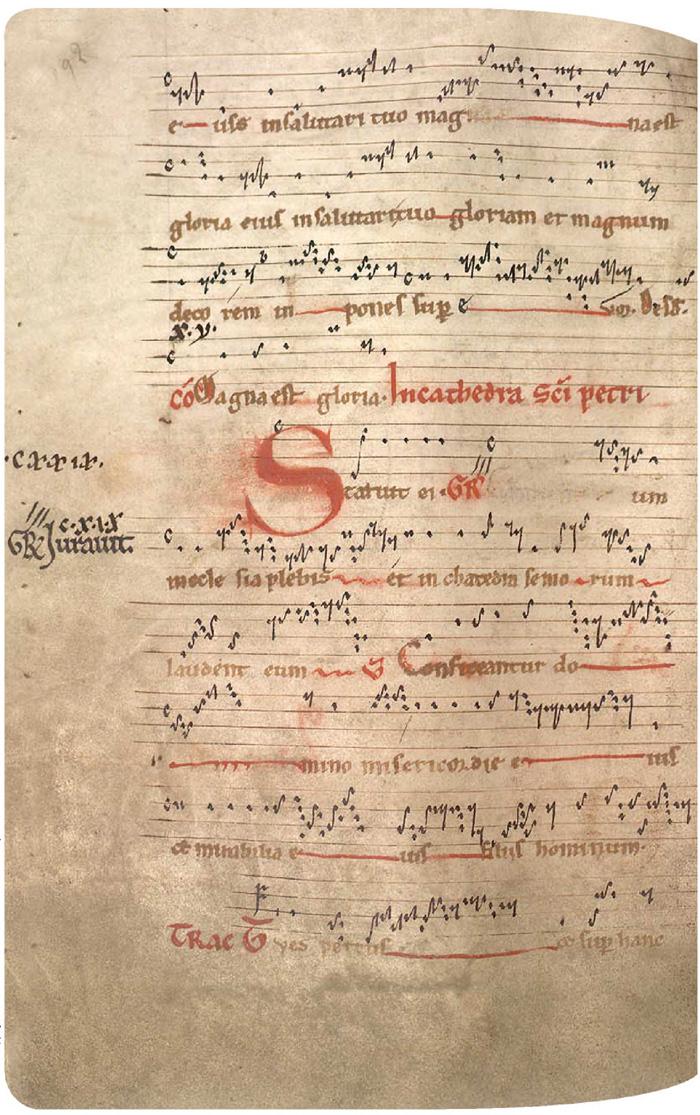 192
e uis in salutari tuo mag na est
gloria eius in salutari tuo gloriam et magnum
deco rem in pones sup e
x. v.
cō Magna est gloria. In cathedra Sc̄i petri
.c xx ix.
Statuit ei. GR um
GR Iurauit. c.x.i.x
in ecle sia plebis et in chatedra senio rum
laudent eum V Confiteantur do
mino misericordie e ius
et mirabilia e ius filiis hominum.
TRAC Tu es petrus et sup hanc